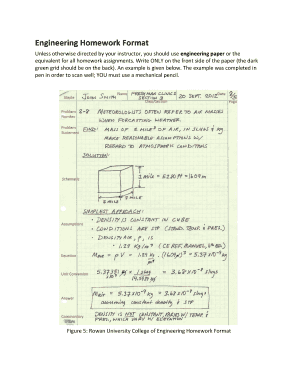 Engineering Homework Format
Unless otherwise directed by your instructor, you should use engineering paper or the
equivalent for all homework assignments. Write ONLY on the front side of the paper (the dark
green grid should be on the back). An example is given below. The example was completed in
pen in order to scan well; YOU must use a mechanical pencil.
Name
JOHN SMITH
FRESHMAN CLINIC
SECTION 3
20 SEPT. 2012
2/5
Problem Number
2-8
METEOROLOGISTS OFTEN REFER TO AIR MASSES
WHEN FORECASTING WEATHER.
Problem
FIND: MASS OF 2 MILE³ OF AIR, IN SLUGS & kg
MAKE REASONABLE ASSUMPTIONS W/
REGARD TO ATMOSPHERIC CONDITIONS
SOLUTION:
Schematic
1 MILE = 5280 ft = 1609 m
2 MILE
SIMPLEST APPROACH:
Assumptions
• DENSITY IS CONSTANT IN CUBE
• CONDITIONS ARE STP (STAND. TEMP. & PRES.)
• DENSITY AIR, ρ, IS
Unit Conversion
Answer
assuming constant density & STP
Commentary
DENSITY IS NOT CONSTANT, VARIES W/ TEMP &
PRES., WHICH VARY W/ ELEVATION
Figure 5: Rowan University College of Engineering Homework Format